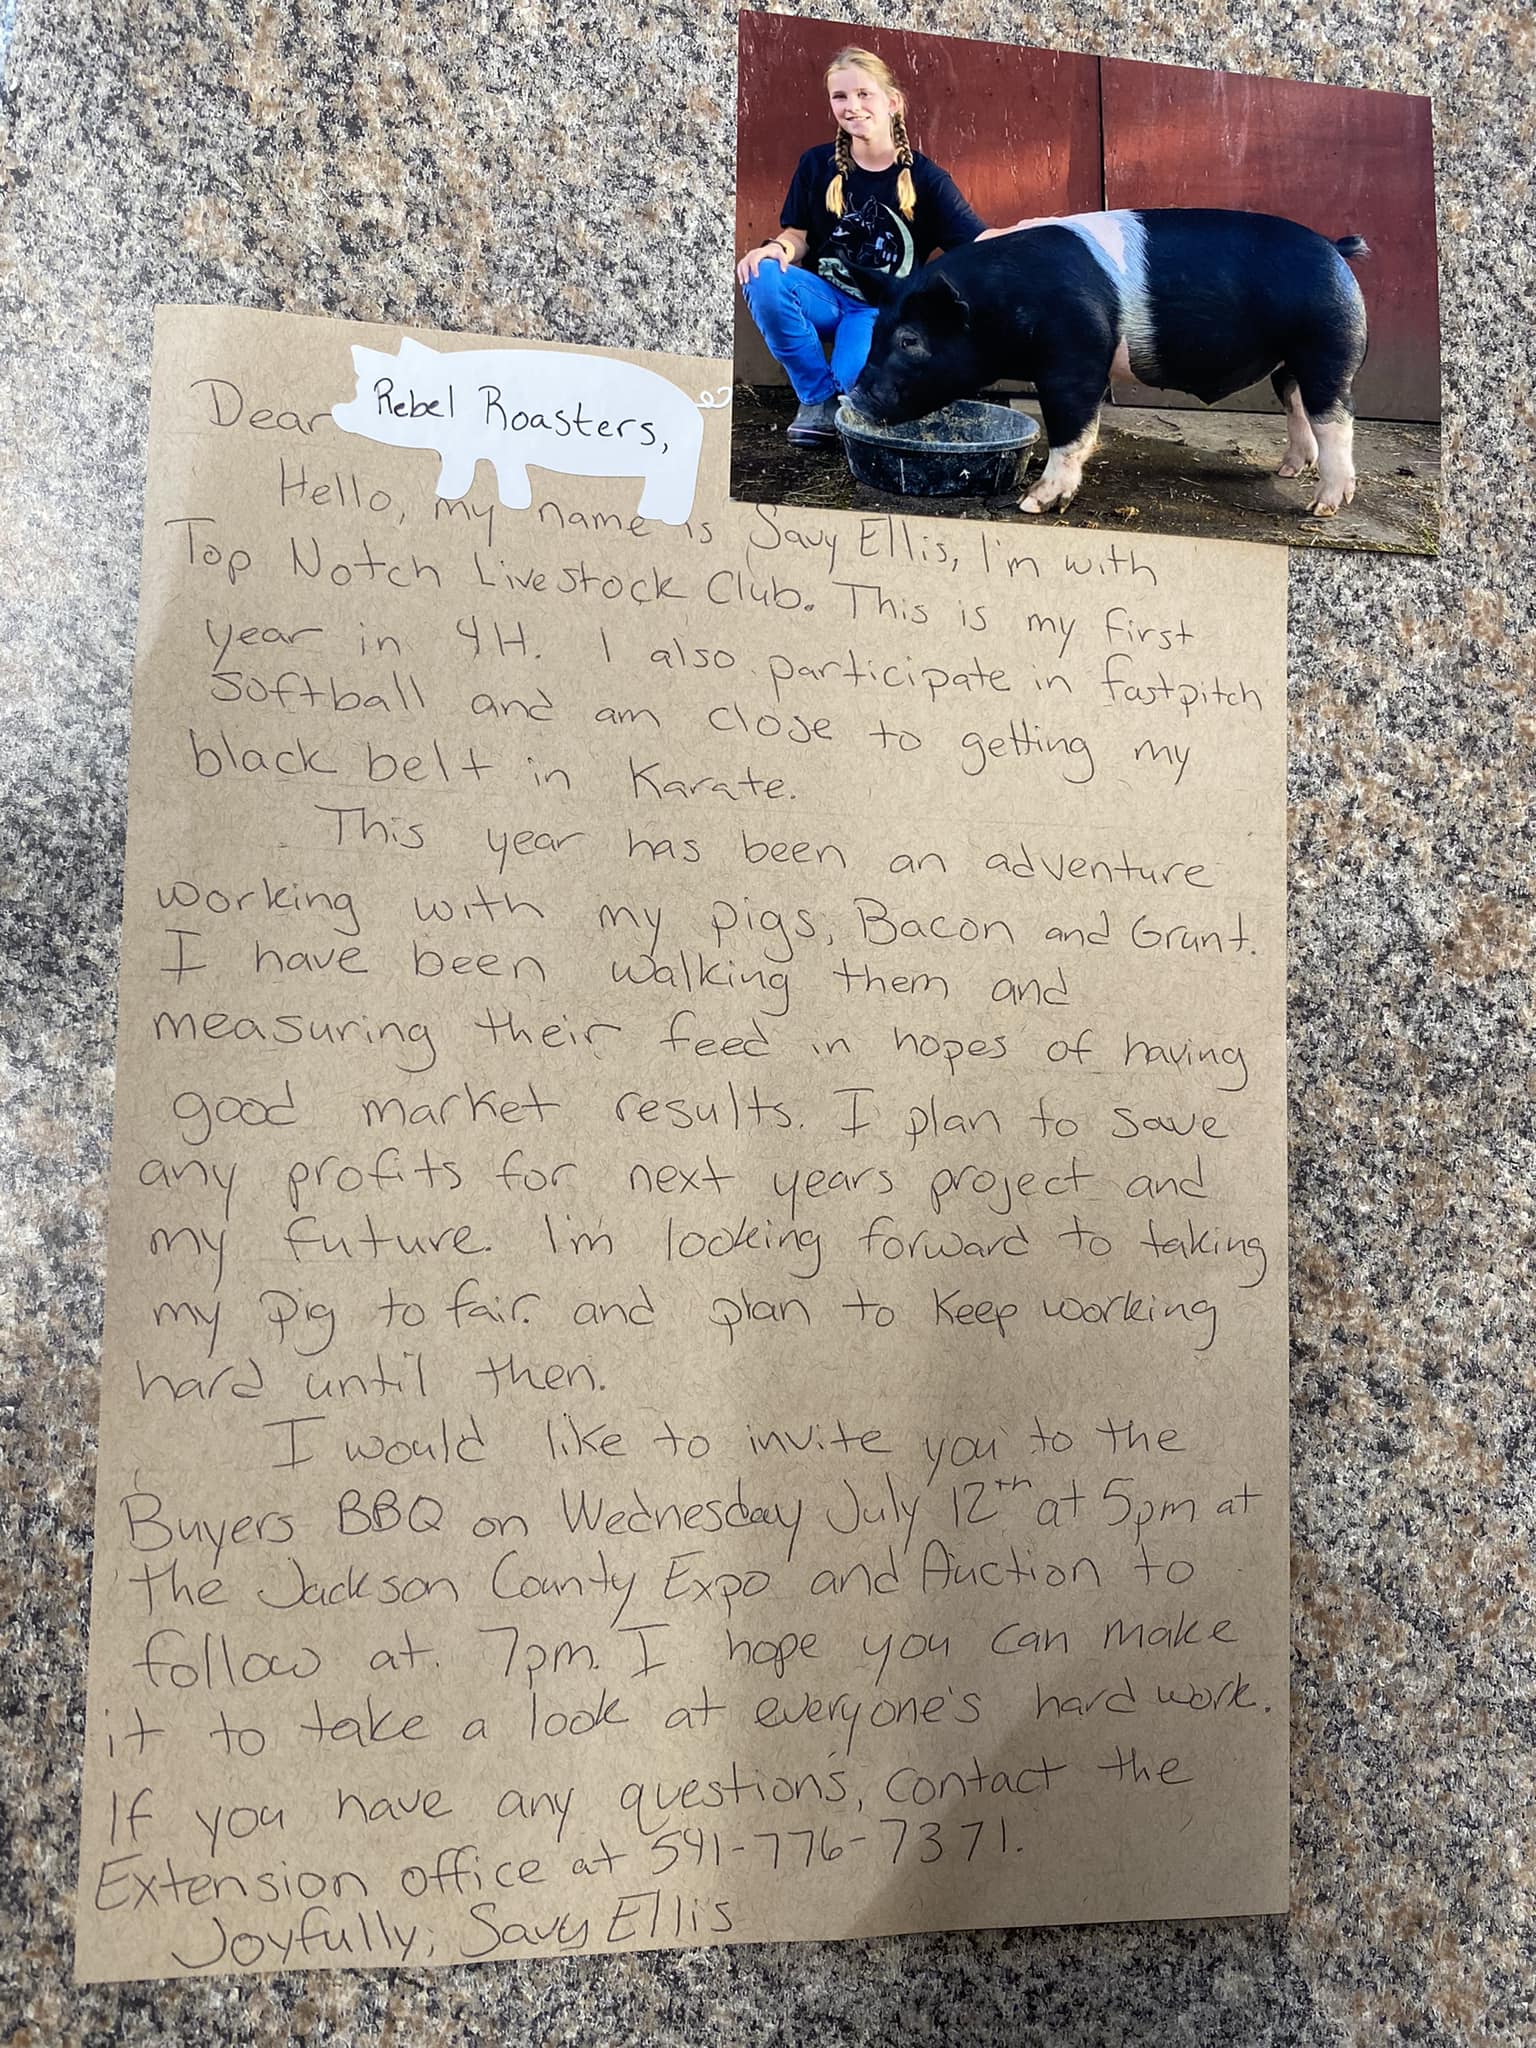 Dear Rebel Roasters,
Hello, my name is Savy Ellis, I'm with
Top Notch Livestock Club. This is my first
year in 4H. I also participate in fastpitch
softball and am close to getting my
black belt in Karate.
This year has been an adventure
working with my pigs, Bacon and Grunt.
I have been walking them and
measuring their feed in hopes of having
good market results. I plan to save
any profits for next years project and
my future. I'm looking forward to taking
my pig to fair. and plan to keep working
hard until then.
I would like to invite you to the
Buyers BBQ on Wednesday July 12th at 5pm at
the Jackson County Expo and Auction to
follow at 7pm. I hope you can make
it to take a look at everyone's hard work.
If you have any questions, contact the
Extension office at 541-776-7371.
Joyfully, Savy Ellis